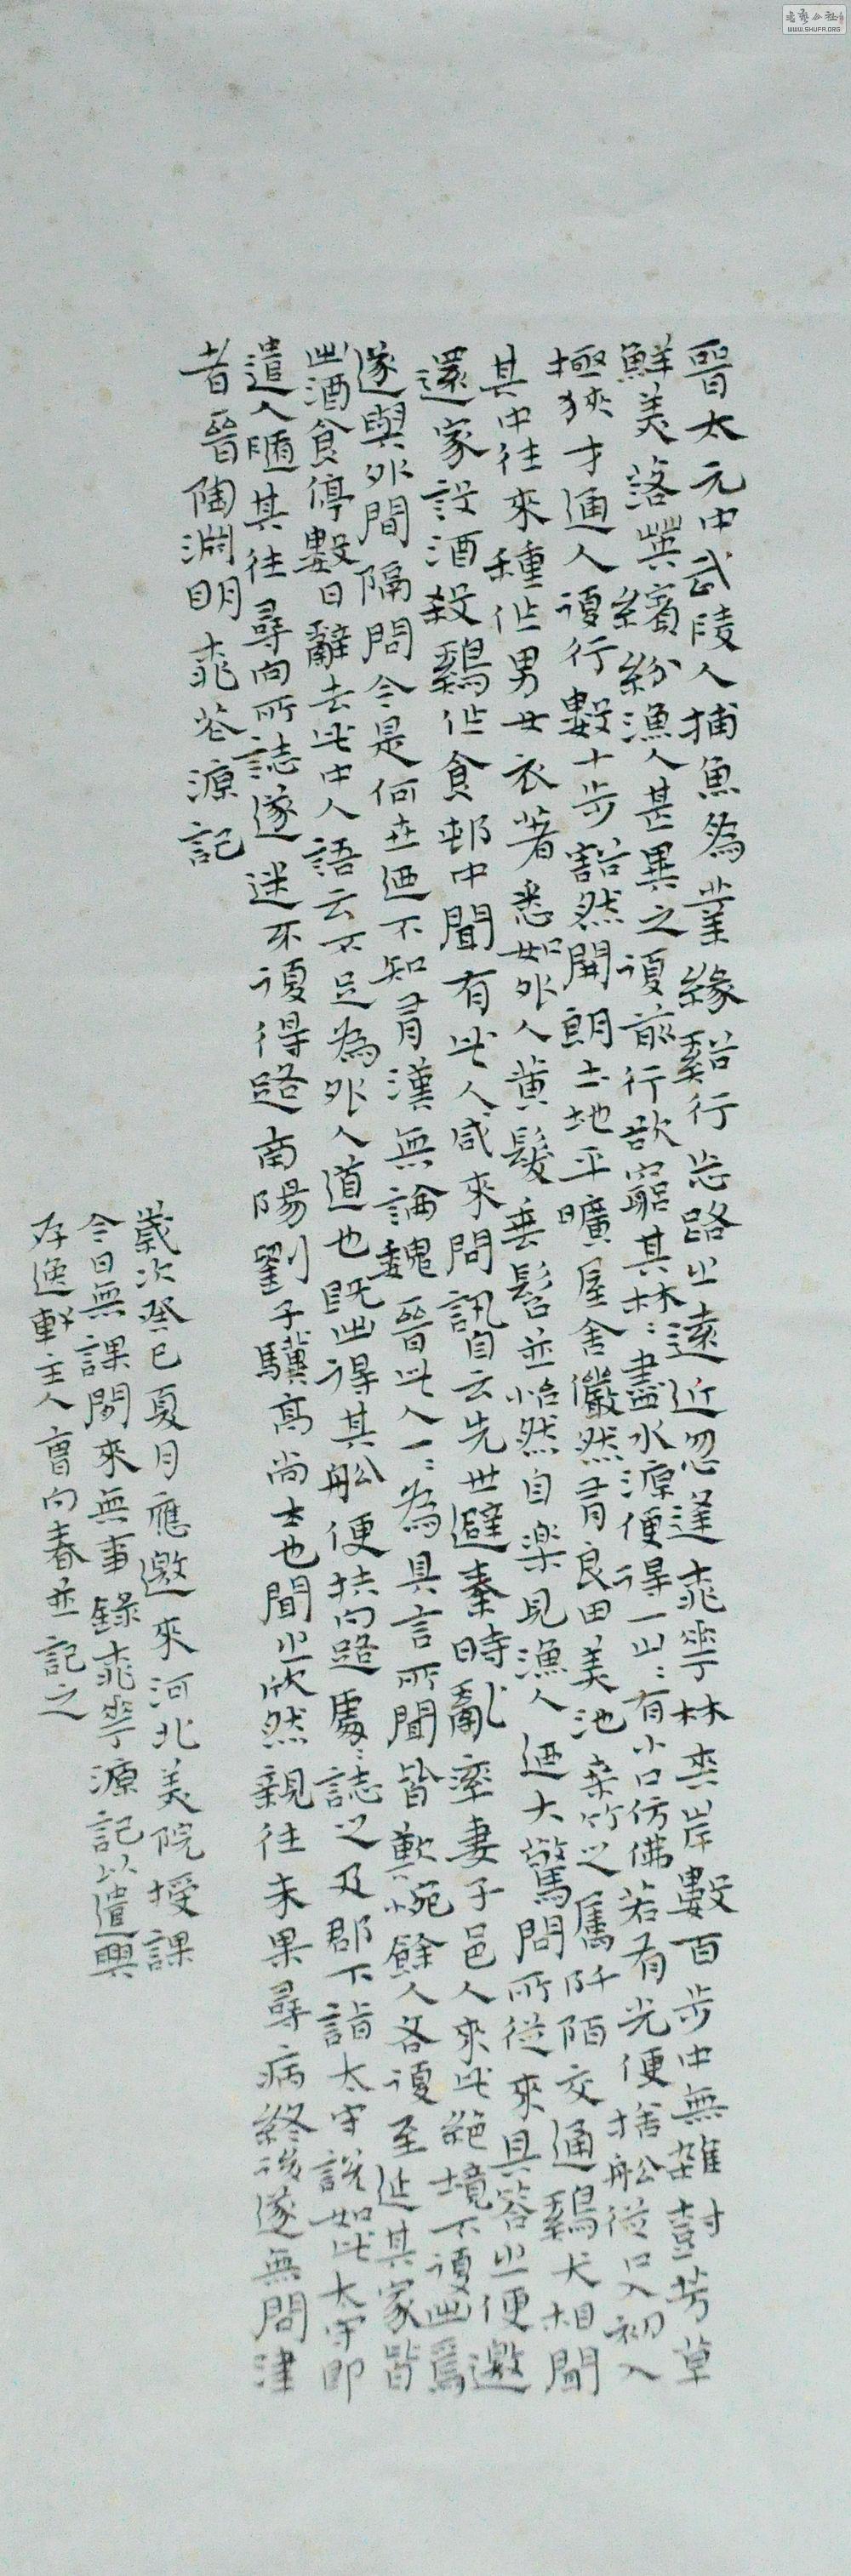 晉太元中武陵人捕魚為業緣谿行忘路㞢遠近忽逢桃華林夾岸數百步中無雜封芳草
鮮美落英繽紛漁人甚異之復前行欲窮其林〻盡水源便得一山〻有小口仿佛若有光便捨船從口入初入
極狹才通人復行數十步豁然開朗土地平曠屋舍儼然有良田美池桑竹之屬阡陌交通鷄犬相聞
其中往來種作男女衣著悉如外人黃髮垂髫並怡然自樂見漁人迺大驚問所從來具答㞢便邀
還家設酒殺鷄作食邨中聞有此人咸來問訊自云先世避秦時亂率妻子邑人來此絕境不復出焉
遂與外間隔問今是何世迺不知有漢無論魏晉此人一〻為具言所聞皆歎惋餘人各復至延其家皆
出酒食停數日辭去此中人語云不足為外人道也既出得其船便扶向路處〻誌之及郡下詣太守說如此太守即
遣人隨其往尋向所誌遂迷不復得路南陽劉子驥高尚士也聞㞢欣然親往未果尋病終後遂無問津
者晉陶淵明桃花源記
歲次癸巳夏月應邀來河北美院授課
今日無課閒來無事錄桃華源記以遣興
存逸軒主人曹向春並記之
书艺公社
WWW.SHUFA.ORG